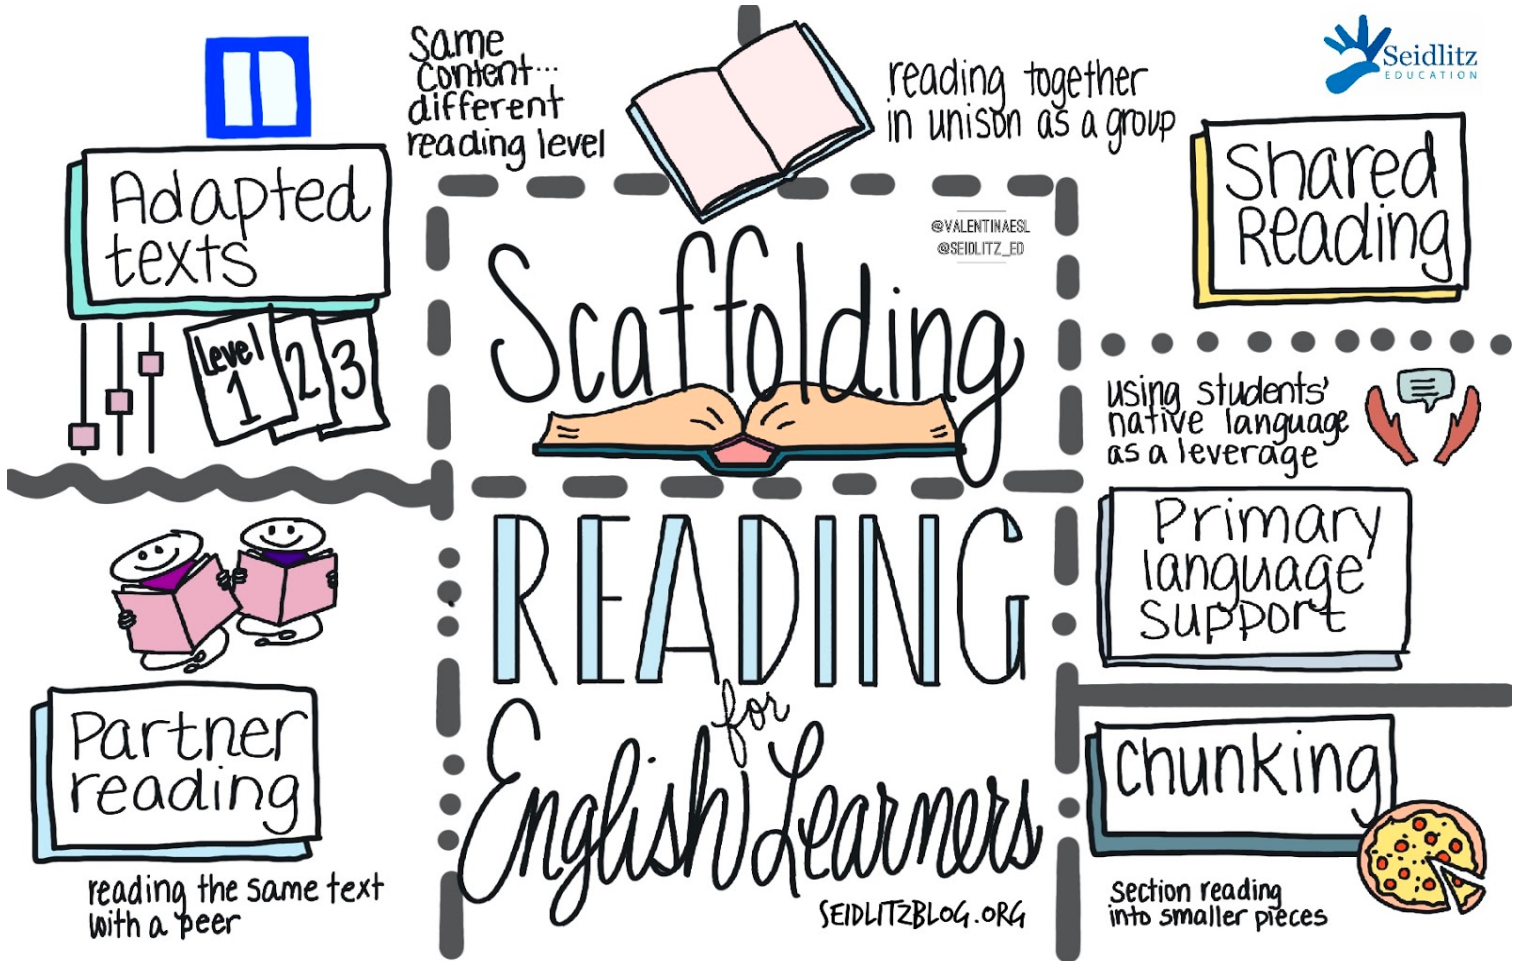 Same
content...
different
reading level
Adapted
texts
Level
1
2
3
reading together
in unison as a group
Seidlitz
EDUCATION
Shared
Reading
@VALENTINAESL
@SEIDLITZ_ED
Scaffolding
READING
for
English Learners
SEIDLITZBLOG.ORG
using students'
native language
as a leverage
Primary
language
support
Partner
reading
reading the same text
with a peer
chunking
section reading
into smaller pieces